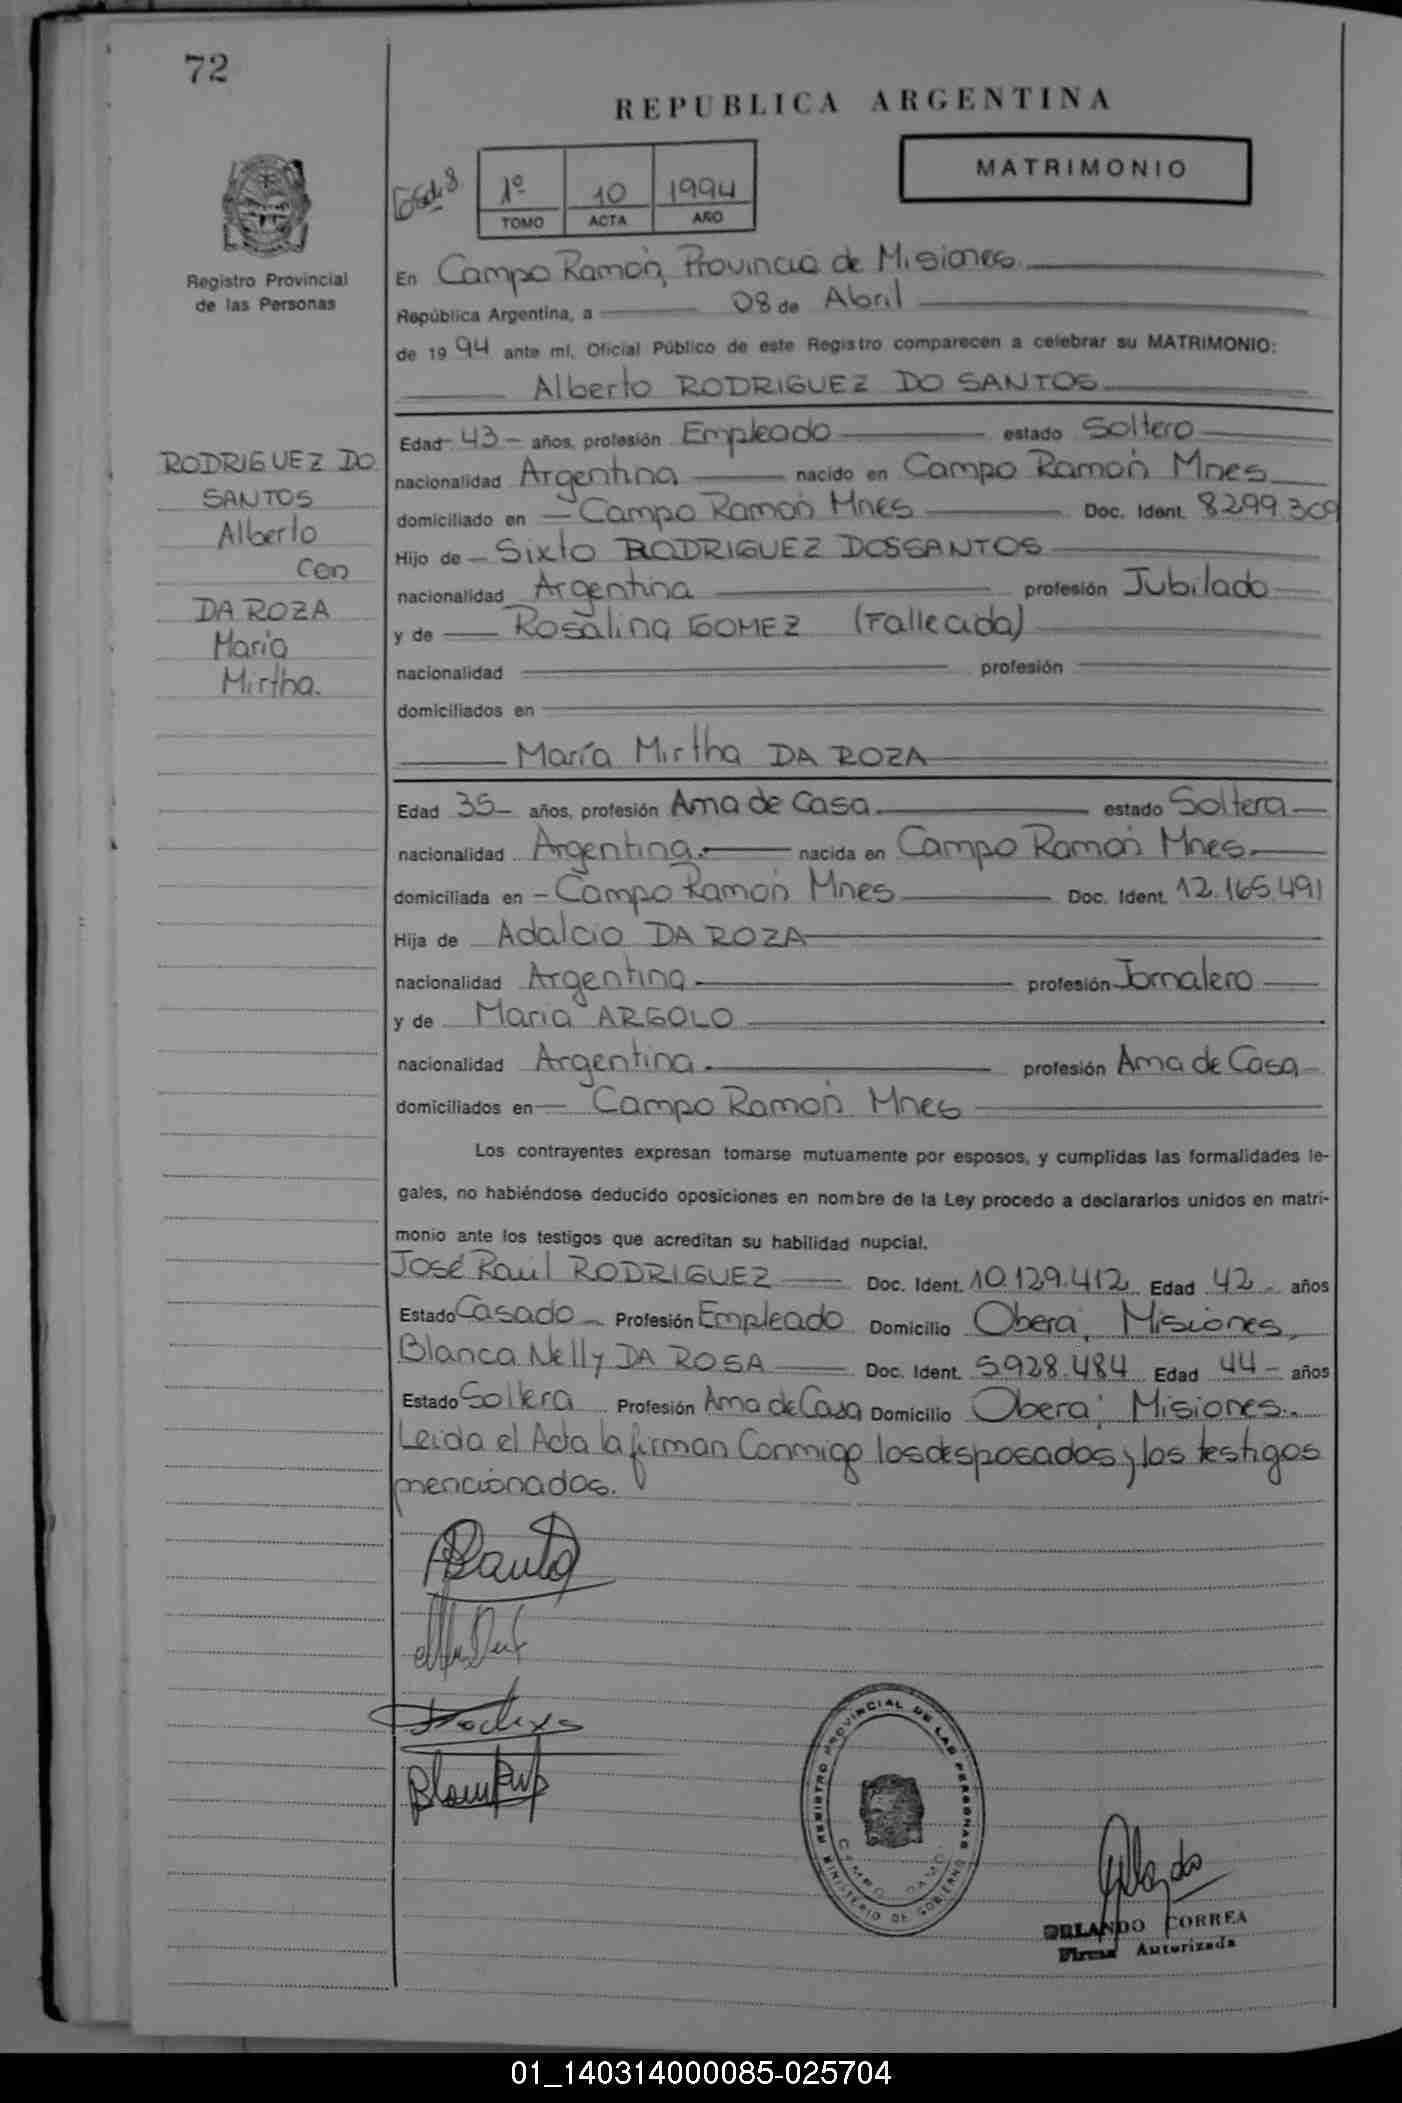 72
REPUBLICA ARGENTINA
MATRIMONIO
1º 10 1994
TOMO ACTA AÑO
Registro Provincial
de las Personas
En Campo Ramón, Provincia de Misiones
República Argentina, a 08 de Abril
de 1994 ante mí, Oficial Público de este Registro comparecen a celebrar su MATRIMONIO:
Alberto RODRIGUEZ DO SANTOS
RODRIGUEZ DO
SANTOS
Alberto
Con
DA ROZA
María
Mirtha.
Edad 43 años, profesión Empleado estado Soltero
nacionalidad Argentina nacido en Campo Ramón Mnes
domiciliado en Campo Ramón Mnes Doc. Ident. 8.299.309
Hijo de Sixto RODRIGUEZ DOSSANTOS
nacionalidad Argentina profesión Jubilado
y de Rosalina GOMEZ (Fallecida)
nacionalidad profesión
domiciliados en
María Mirtha DA ROZA
Edad 35 años, profesión Ama de Casa. estado Soltera
nacionalidad Argentina. nacida en Campo Ramón Mnes.
domiciliada en Campo Ramón Mnes Doc. Ident. 12.165.491
Hija de Adalcio DA ROZA
nacionalidad Argentina profesión Jornalero
y de Maria ARGOLO
nacionalidad Argentina. profesión Ama de Casa
domiciliados en Campo Ramón Mnes
Los contrayentes expresan tomarse mutuamente por esposos, y cumplidas las formalidades le-
gales, no habiéndose deducido oposiciones en nombre de la Ley procedo a declararlos unidos en matri-
monio ante los testigos que acreditan su habilidad nupcial.
José Raúl RODRIGUEZ Doc. Ident. 10.129.412 Edad 42 años
Estado Casado Profesión Empleado Domicilio Oberá, Misiones,
Blanca Nelly DA ROSA Doc. Ident. 5.928.484 Edad 44 años
Estado Soltera Profesión Ama de Casa Domicilio Oberá, Misiones.
Leida el Acta la firman Conmigo los desposados y los testigos
mencionados.
REGISTRO PROVINCIAL DE LAS PERSONAS
MINISTERIO DE GOBIERNO
ORLANDO CORREA
Firma Autorizada
01_140314000085-025704